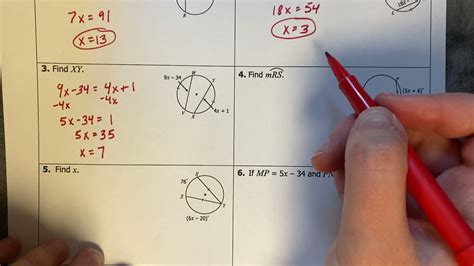 7x = 91
x = 13
18x = 54
x = 3
3. Find XY.
9x - 34 = 4x + 1
-4x -4x
5x - 34 = 1
5x = 35
x = 7
9x - 34
4x + 1
Y
X
4. Find mRS.
(5x + 6)°
5. Find x.
76°
X
Y
(6x - 20)°
6. If MP = 5x - 34 and